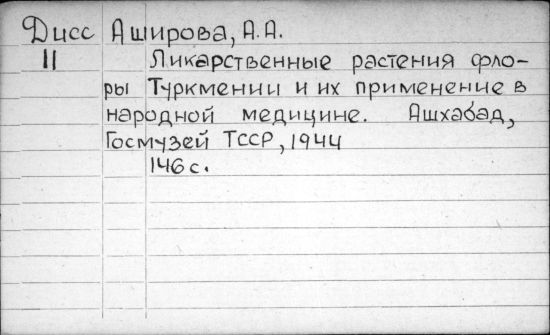 Дисс Аширова, А.А.
11 Ликарственные растения фло-
ры Туркмении и их применение в
народной медицине. Ашхабад,
Госмузей ТССР, 1944
146 с.